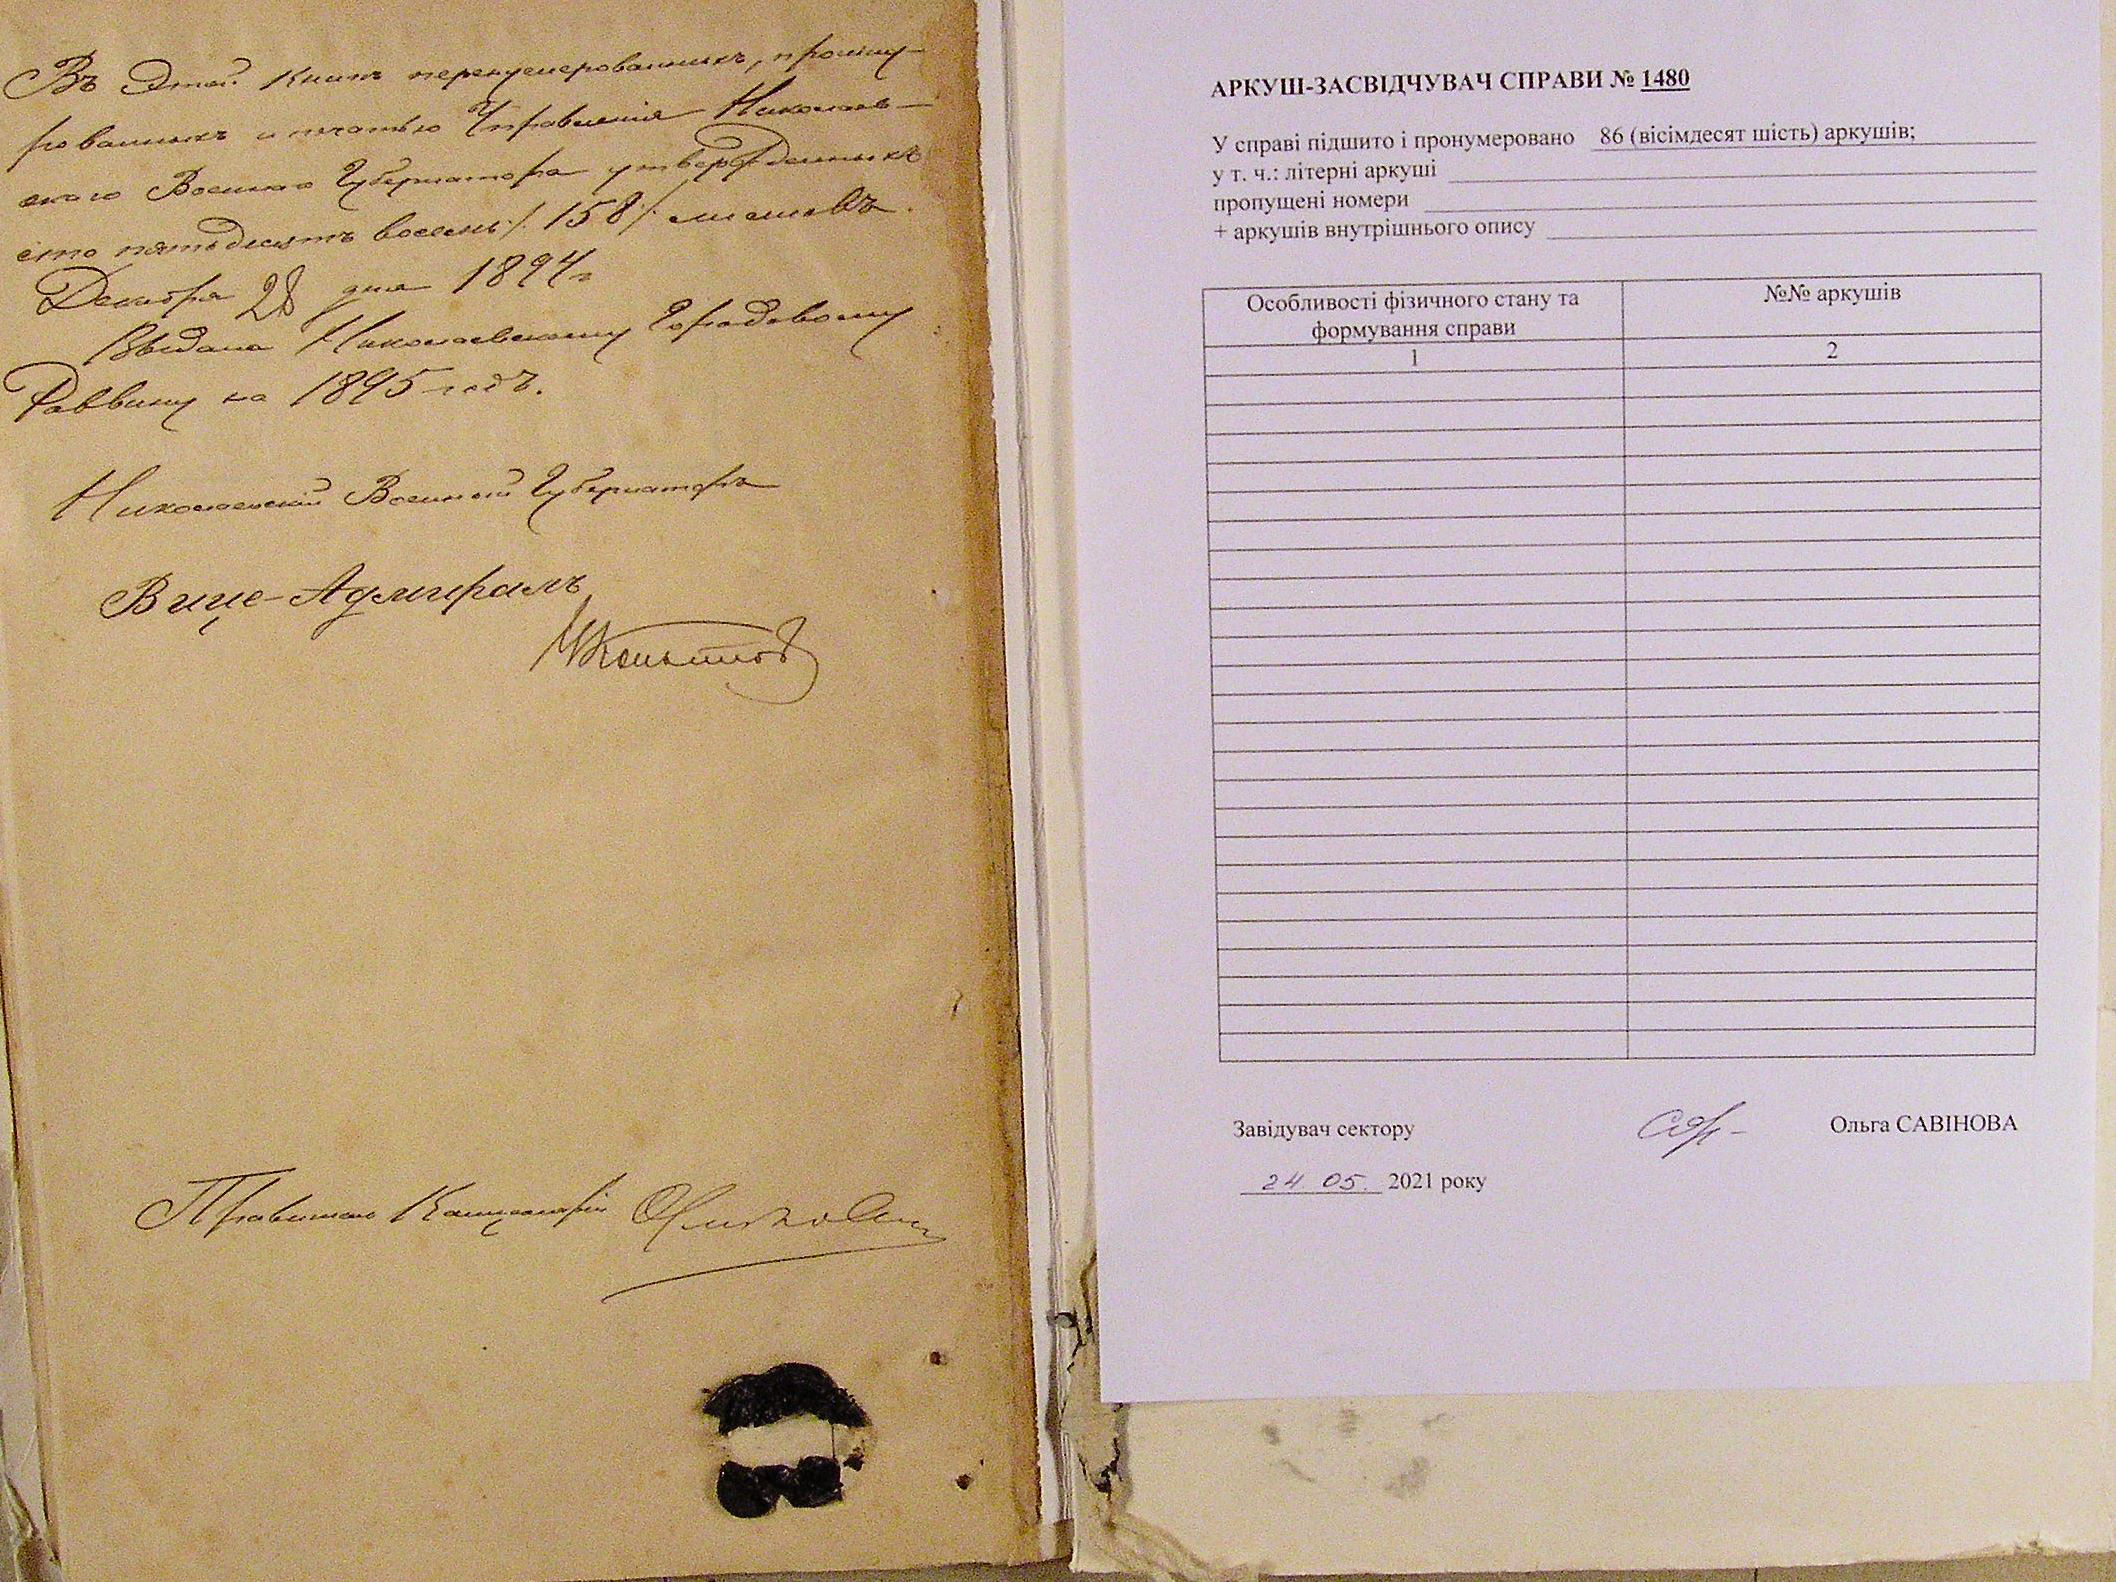 Въ этой книгѣ перенумерованныхъ, прошну-
рованныхъ и печатью Управленія Николаев-
скаго Военнаго Губернатора утвержденныхъ
сто пятьдесятъ восемь /.158/. листовъ.
Декабря 28 дня 1894 г
Выдана Николаевскому Городовому
Раввину на 1895 годъ.
Николаевскій Военный Губернаторъ
Вице-Адмиралъ
Правитель Канцеляріи
АРКУШ-ЗАСВІДЧУВАЧ СПРАВИ № 1480
У справі підшито і пронумеровано 86 (вісімдесят шість) аркушів;
у т. ч.: літерні аркуші
пропущені номери
+ аркушів внутрішнього опису
Особливості фізичного стану та
формування справи
№№ аркушів
1
2
Завідувач сектору
Ольга САВІНОВА
24 05. 2021 року